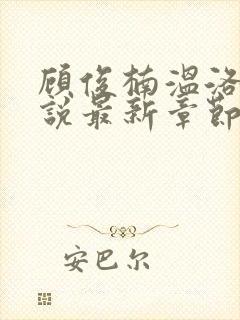 顾俊楠温洛
说最新章节
安巴尔